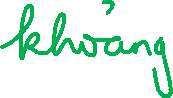 khoảng